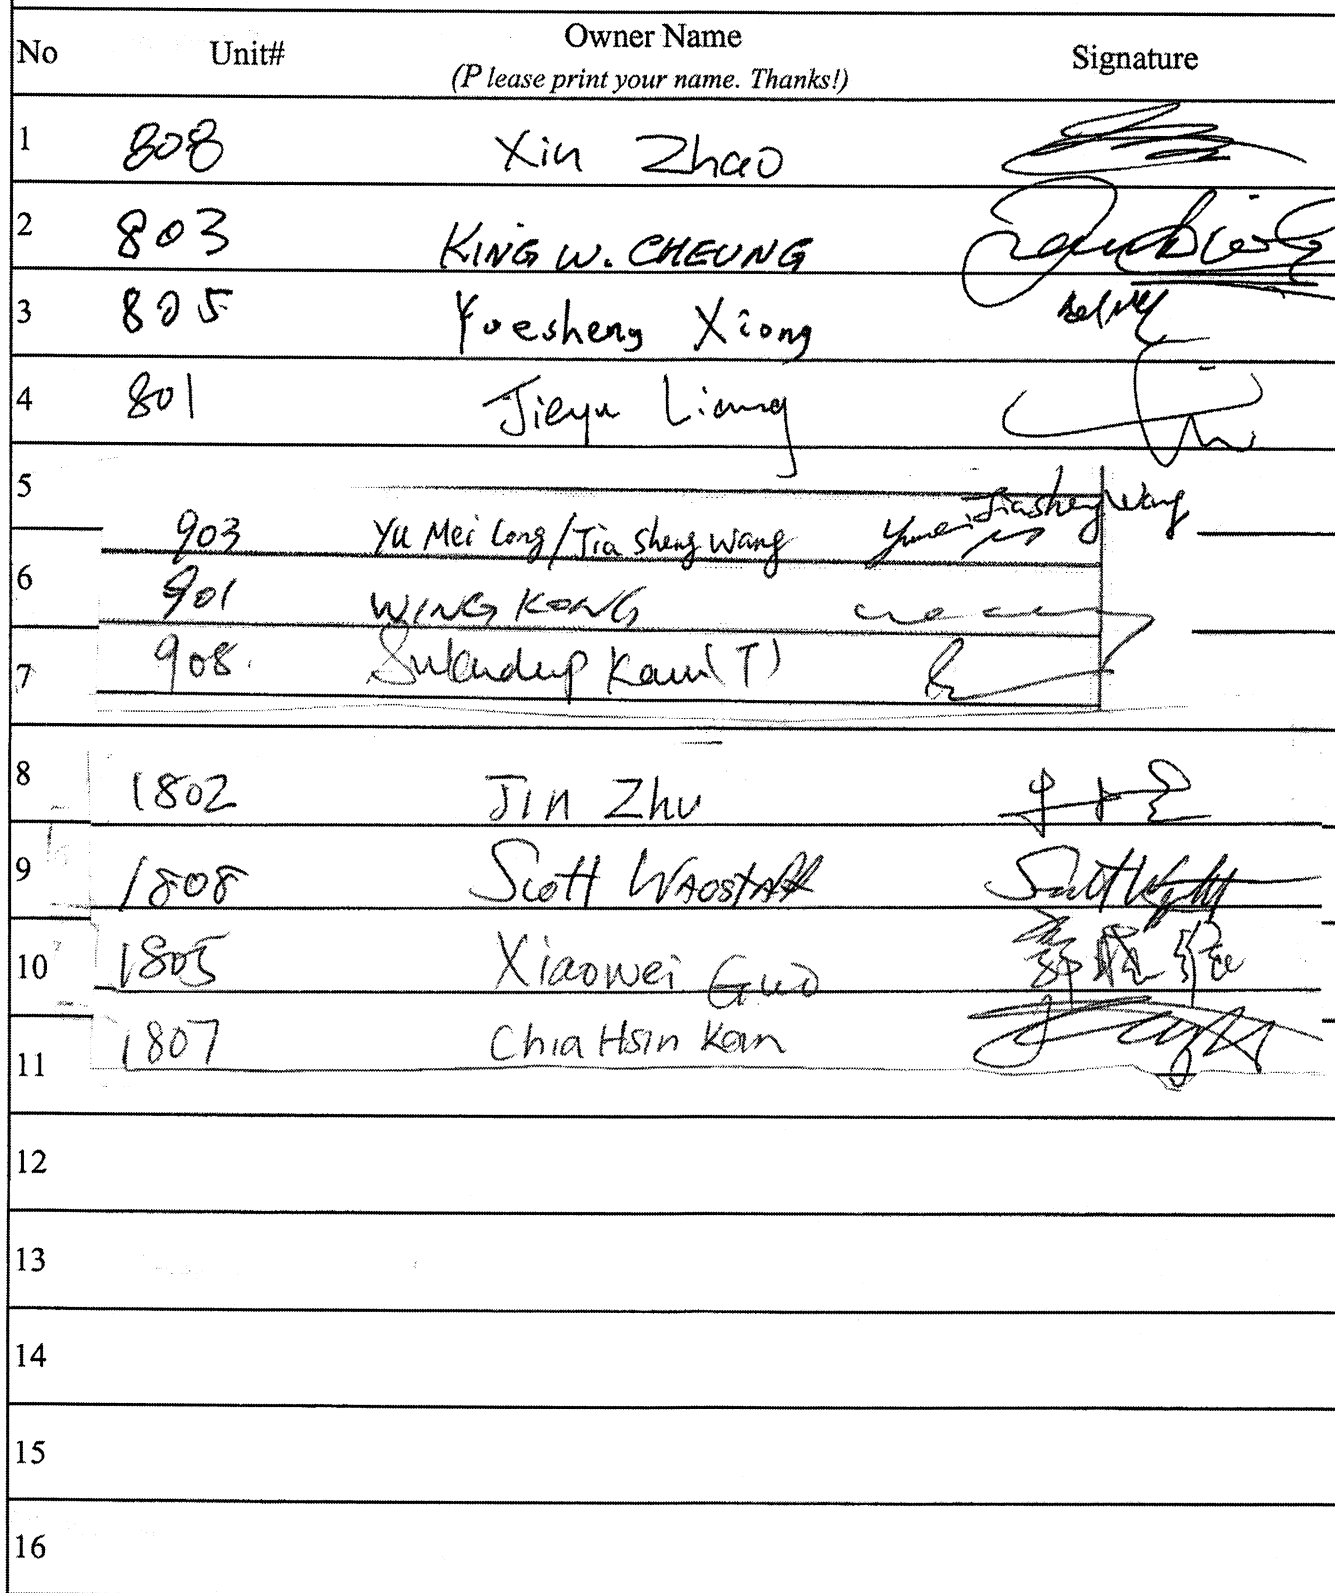 No Unit# Owner Name Signature
(P lease print your name. Thanks!)
1 808 Xin Zhao
2 803 KING W. CHEUNG
3 805 Yuesheng Xiong
4 801 Jieyu Liang
5 903 Yu Mei Long/Jia sheng Wang Yumei Jiasheng Wang
6 901 WING KONG
7 908 Kaur(T)
8 1802 Jin Zhu
9 1808 Scott WAGSTAFF
10 1805 Xiaowei Guo
11 1807 Chia Hsin Kan
12
13
14
15
16